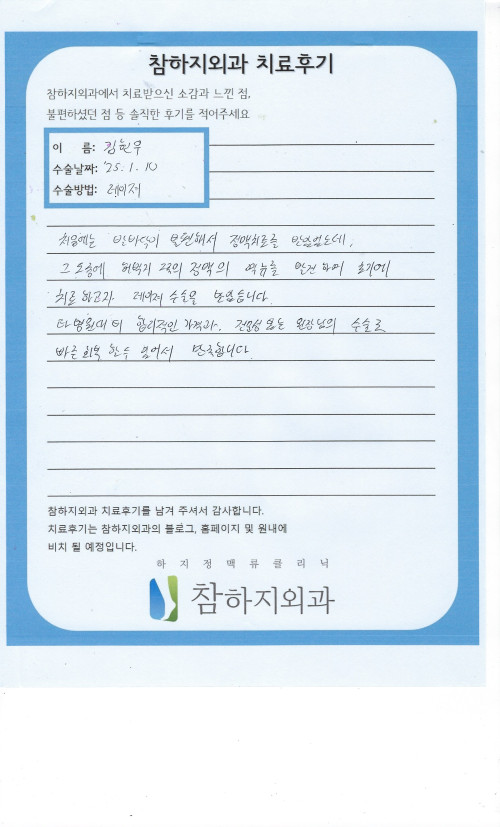 참하지외과 치료후기
참하지외과에서 치료받으신 소감과 느낀 점,
불편하셨던 점 등 솔직한 후기를 적어주세요
이 름: 김현우
수술날짜: '25. 1. 10
수술방법: 레이저
처음에는 발바닥이 불편해서 정맥치료를 받았었는데,
그 도중에 허벅지 쪽의 정맥의 역류를 발견하여 초기에
치료 하고자 레이저 수술을 받았습니다.
타병원대비 합리적인 가격과 전문성 있는 원장님의 수술로
빠른 회복 할 수 있어서 만족합니다.
참하지외과 치료후기를 남겨 주셔서 감사합니다.
치료후기는 참하지외과의 블로그, 홈페이지 및 원내에
비치 될 예정입니다.
하지정맥류클리닉
참하지외과